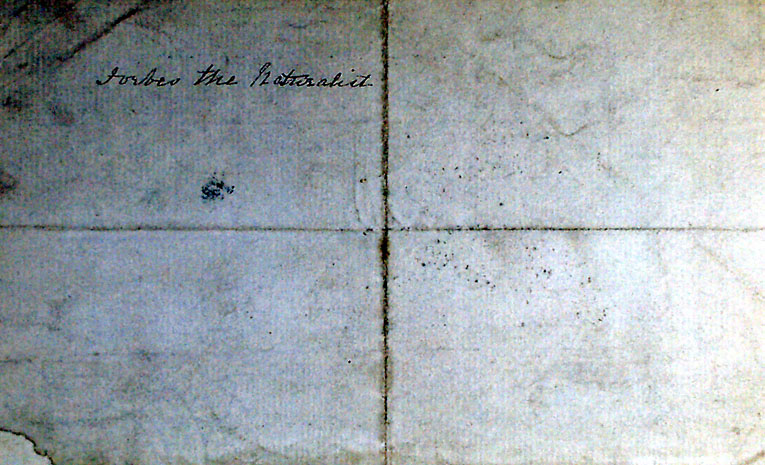 Forbes the Naturalist